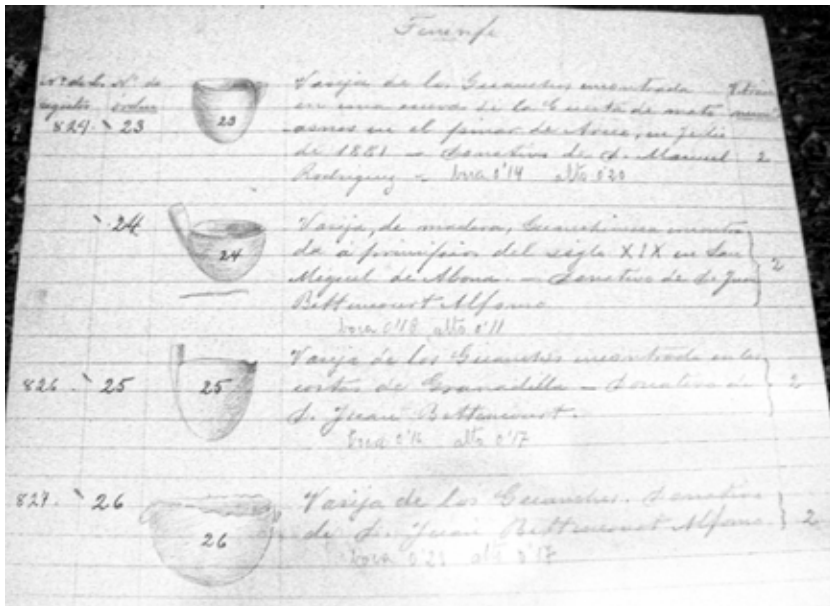 Tenerife
Nº de
orden
824. 23
23
Vasija de los Guanches encontrada
en una cueva de la Cuesta de mata
asnos en el pinar de Arico, en Julio
de 1881 — donativo de D. Manuel 2
Rodriguez — boca 0'14 alto 0'20
24
24
Vasija, de madera, Guanchinesca encontra
da a principios del siglo XIX en San
Miguel de Abona. — Donativo de D. Juan 2
Bettencourt Alfonso
boca 0'18 alto 0'11
826. 25
25
Vasija de los Guanches encontrada en las
costas de Granadilla — Donativo de 2
D. Juan Bettencourt.
boca 0'16 alto 0'17
827. 26
26
Vasija de los Guanches. Donativo
de D. Juan Bettencourt Alfonso 2
boca 0'23 alto 0'17